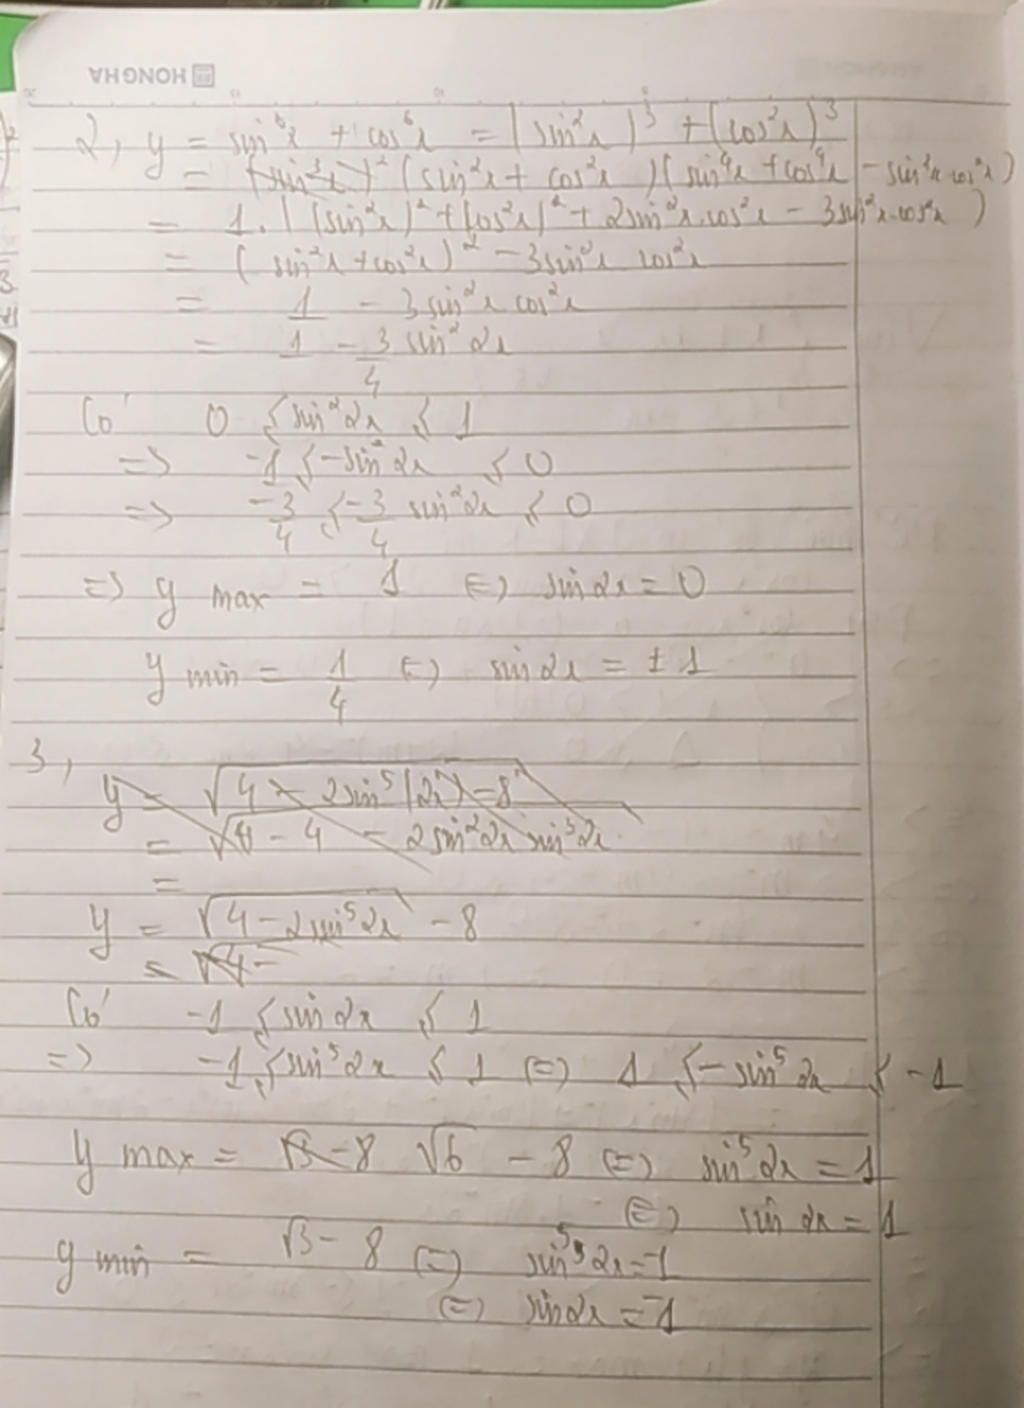 HONGHA
2, y = sin⁶x + cos⁶x = (sin²x)³ + (cos²x)³
= (sin³x)² (sin²x + cos²x)(sin⁴x + cos⁴x - sin²x cos²x)
= 1. ((sin²x)² + (cos²x)² + 2sin²x.cos²x - 3sin²x.cos²x)
= (sin²x + cos²x)² - 3sin²x cos²x
= 1 - 3sin²x cos²x
= 1 - 3/4 sin²2x
Có 0 ≤ sin²2x ≤ 1
=> -1 ≤ -sin²2x ≤ 0
=> -3/4 ≤ -3/4 sin²2x ≤ 0
=> y max = 1 (=) sin2x = 0
y min = 1/4 (=) sin2x = ±1
3,
y = √(4 - 2sin⁵(2x) - 8
= √(8 - 4 - 2sin²2x sin³2x
=
y = √(4 - 2sin⁵2x) - 8
= √4 -
Có -1 ≤ sin2x ≤ 1
=> -1 ≤ sin⁵2x ≤ 1 (=) 1 ≤ -sin⁵2x ≤ -1
y max = √3 - 8 √6 - 8 (=) sin⁵2x = 1
(=) sin 2x = 1
y min = √3 - 8 (=) sin⁵2x = -1
(=) sin2x = -1